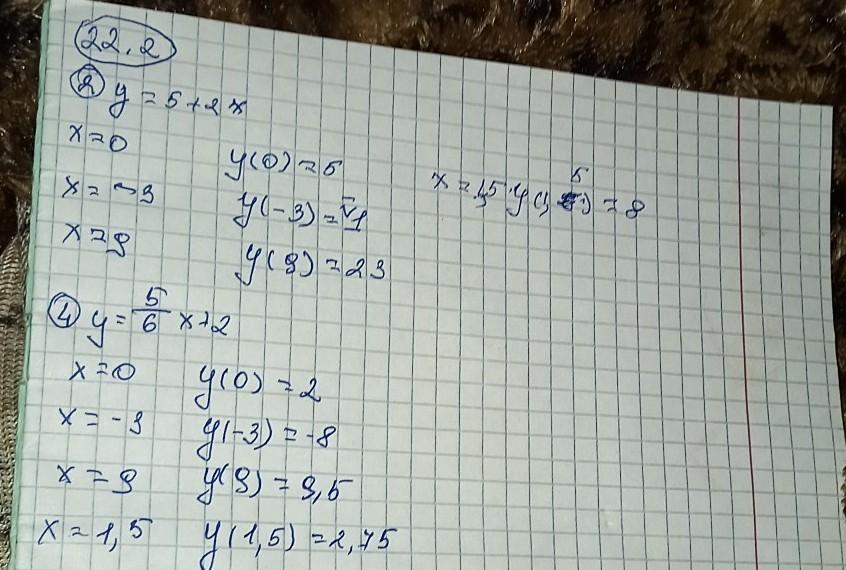 22.2
② y = 5 + 2x
x = 0 y(0) = 5
x = -3 y(-3) = -1
x = 9 y(9) = 23
x = 1,5 y(1,5) = 8
④ y = 5/6 x + 2
x = 0 y(0) = 2
x = -3 y(-3) = -8
x = 9 y(9) = 9,5
x = 1,5 y(1,5) = 2,75